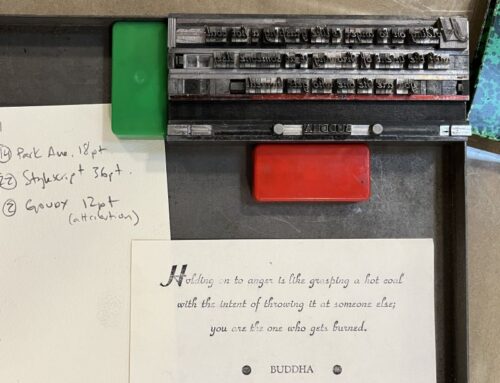 Park Ave. 18pt
22 Stylescript 36pt.
2 Goudy 12pt
(attribution)
Holding on to anger is like grasping a hot coal
with the intent of throwing it at someone else;
you are the one who gets burned.
BUDDHA